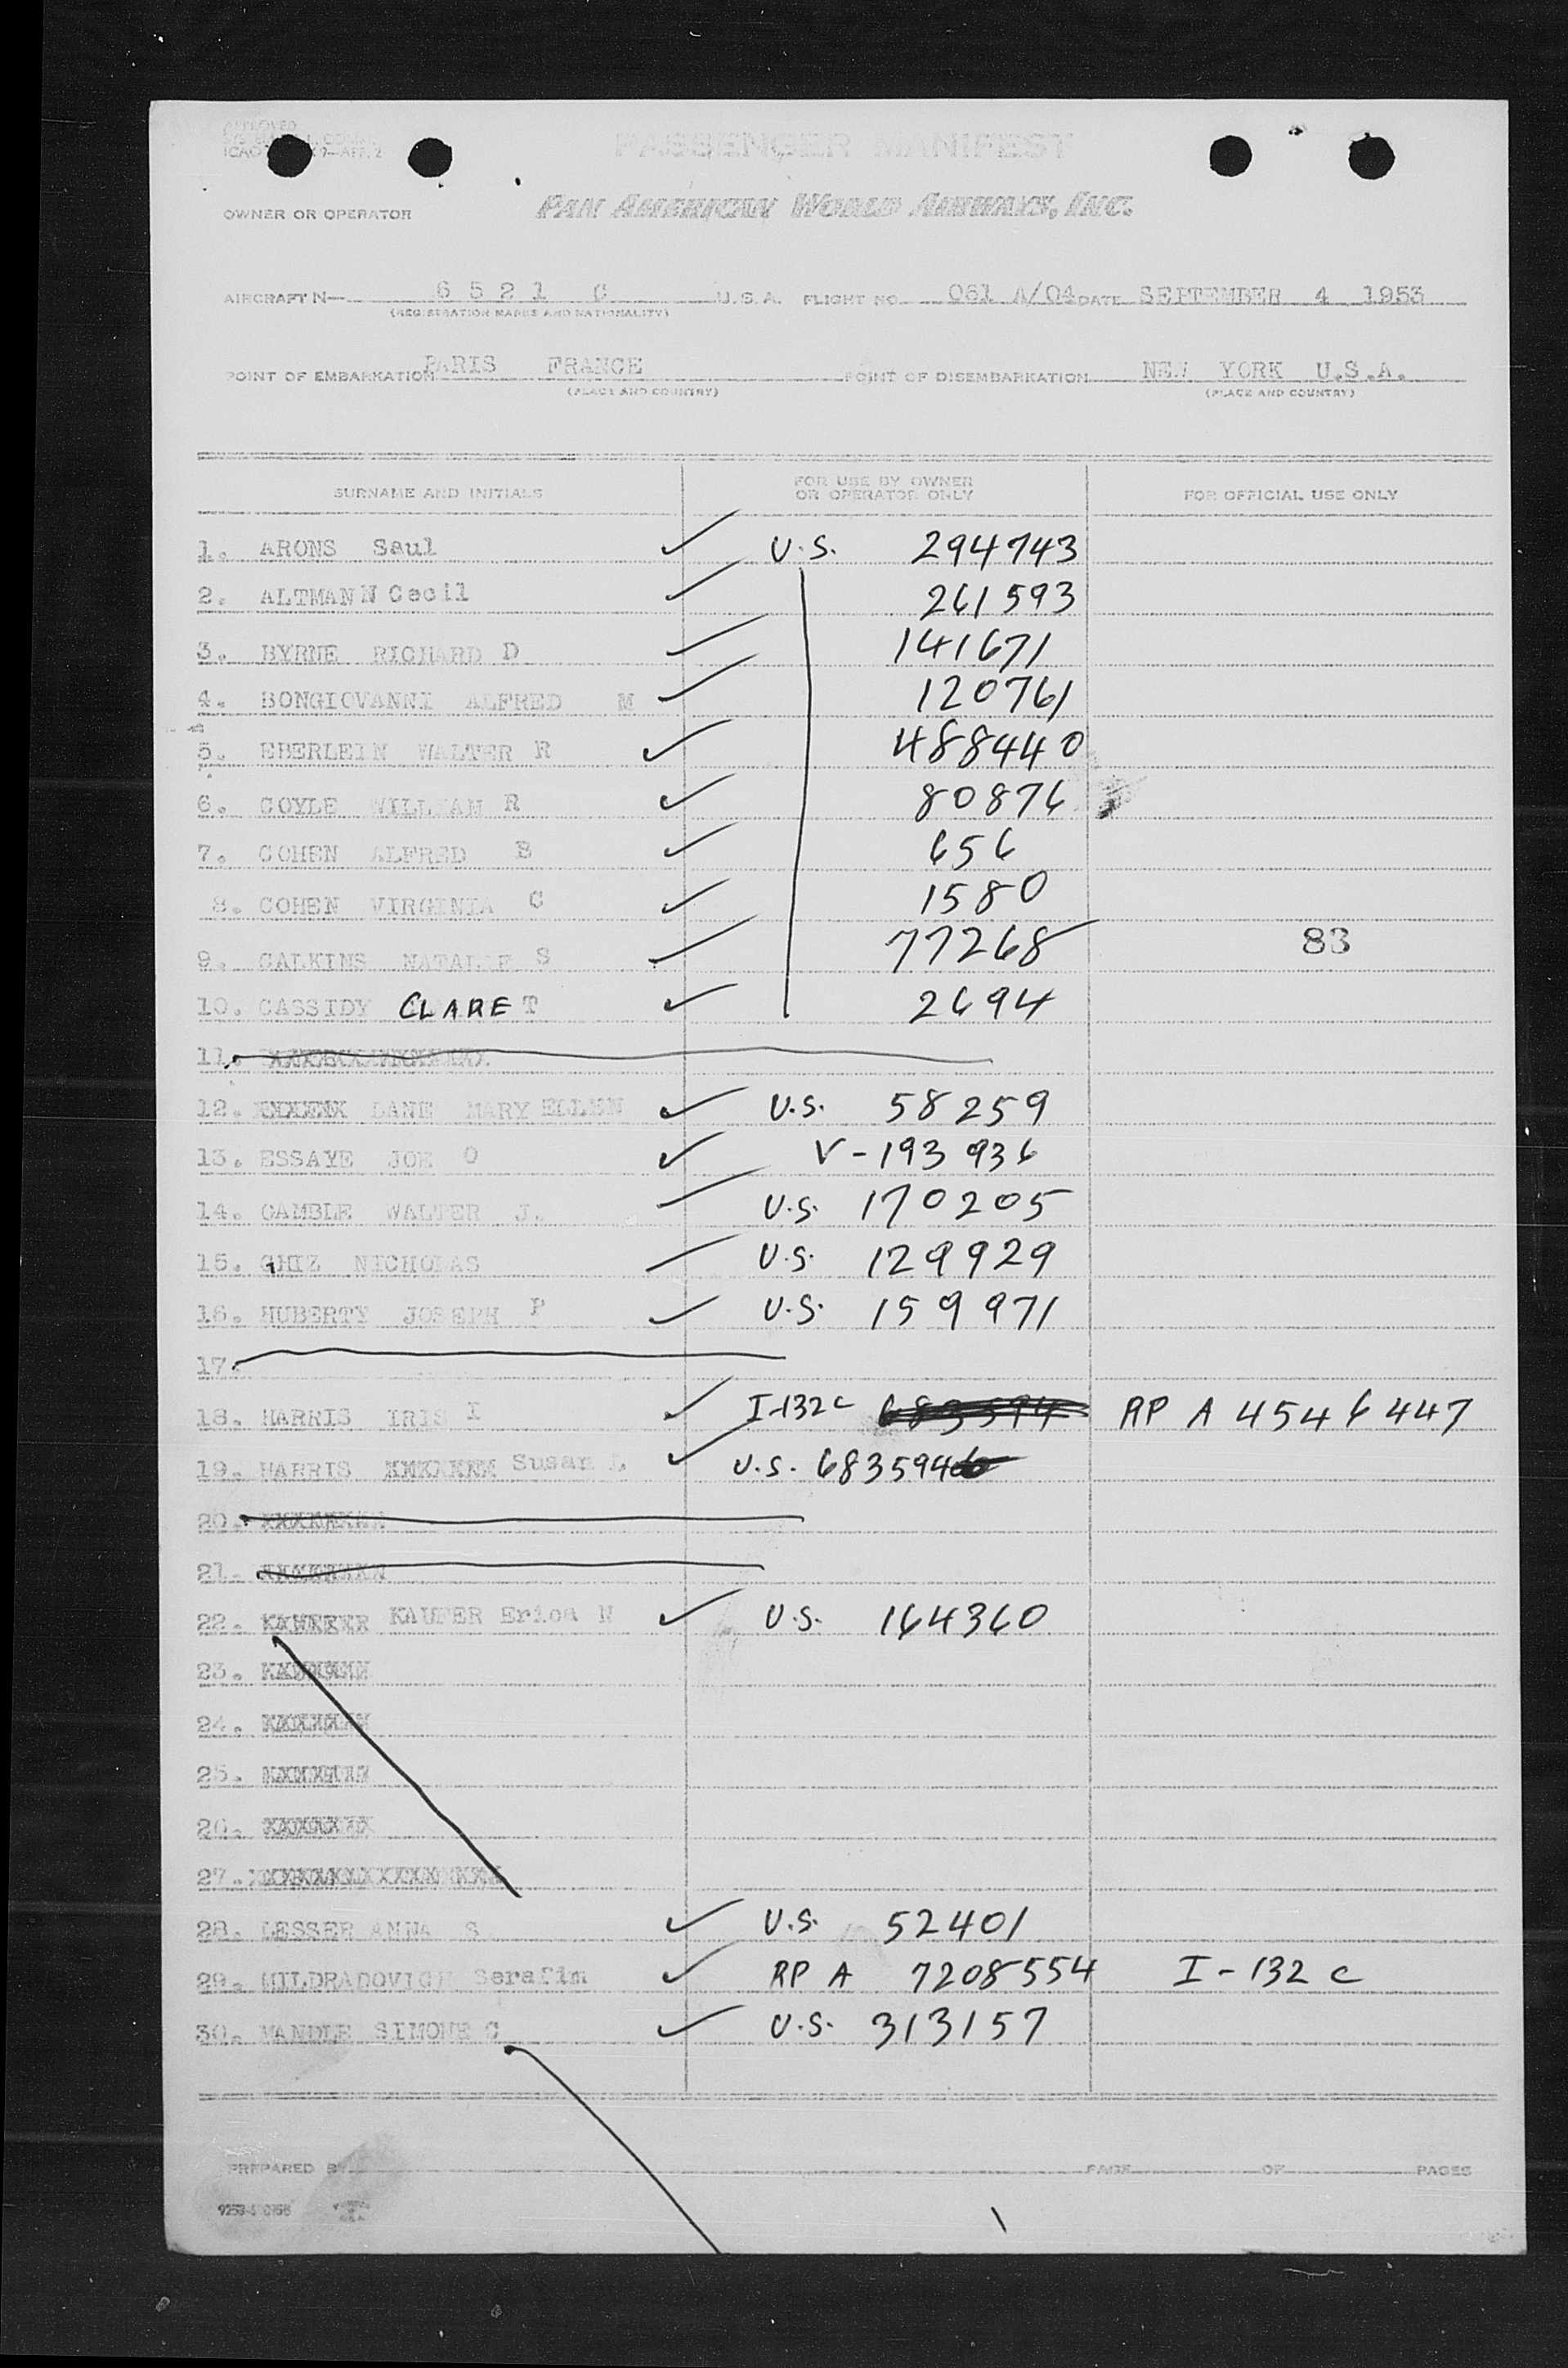 APPROVED
ICAO
PASSENGER MANIFEST
OWNER OR OPERATOR PAN AMERICAN WORLD AIRWAYS, INC.
AIRCRAFT N— 6 5 2 1 C U.S.A. FLIGHT NO. 061 A/04 DATE SEPTEMBER 4 1953
(REGISTRATION MARKS AND NATIONALITY)
POINT OF EMBARKATION PARIS FRANCE POINT OF DISEMBARKATION NEW YORK U.S.A.
(PLACE AND COUNTRY) (PLACE AND COUNTRY)
SURNAME AND INITIALS FOR USE BY OWNER OR OPERATOR ONLY FOR OFFICIAL USE ONLY
1. ARONS Saul U.S. 294743
2. ALTMANN Cecil 261593
3. BYRNE RICHARD D 141671
4. BONGIOVANNI ALFRED M 120761
5. EBERLEIN WALTER R 488440
6. COYLE WILLIAM R 80876
7. COHEN ALFRED B 656
8. COHEN VIRGINIA C 1580
9. CALKINS NATALIE S 77268 83
10. CASSIDY CLARE T 2694
11.
12. LANE MARY ELLEN U.S. 58259
13. ESSAYE JOE O V-193936
14. GAMBLE WALTER J. U.S. 170205
15. GHIZ NICHOLAS U.S. 129929
16. HUBERTY JOSEPH P U.S. 159971
17.
18. HARRIS IRIS I I-132c 683594 RP A 4546447
19. HARRIS Susan L U.S. 683594
20.
21.
22. KAUFER Erica N U.S. 164360
23.
24.
25.
26.
27.
28. LESSER ANNA S U.S. 52401
29. MILDRADOVICH Serafim RP A 7208554 I-132c
30. WANDLE SIMONE C U.S. 313157
PREPARED BY PAGE OF PAGES